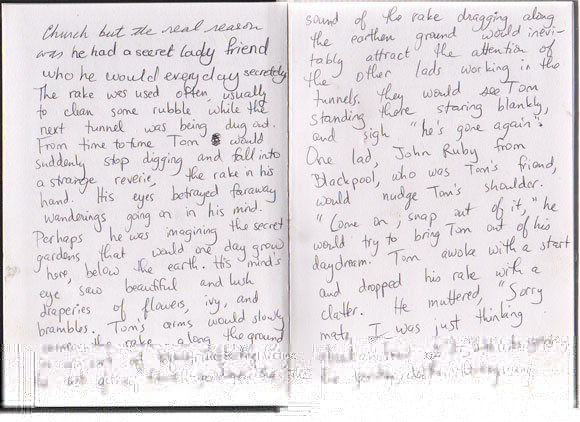 Church but the real reason
was he had a secret lady friend
who he would everyday secretely
The rake was used often, usually
to clean some rubble, while the
next tunnel was being dug out.
From time to time Tom would
suddenly stop digging and fall into
a strange reverie, the rake in his
hand. His eyes betrayed faraway
wanderings going on in his mind.
Perhaps he was imagining the secret
gardens that would one day grow
here, below the earth. His mind's
eye saw beautiful and lush
draperies of flowers, ivy, and
brambles. Tom's arms would slowly
the rake along the ground
sound of the rake dragging along
the earthen ground would inevi-
tably attract the attention of
the other lads working in the
tunnels. They would see Tom
standing there staring blankly,
and sigh "he's gone again".
One lad, John Ruby from
Blackpool, who was Tom's friend,
would nudge Tom's shoulder.
"Come on, snap out of it," he
would try to bring Tom out of his
daydream. Tom awoke with a start
and dropped his rake with a
clatter. He muttered, "Sorry
mate, I was just thinking